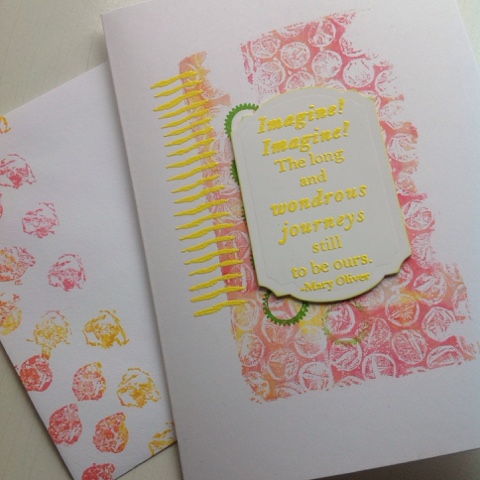 Imagine!
Imagine!
The long
and
wondrous
journeys
still
to be ours.
-Mary Oliver